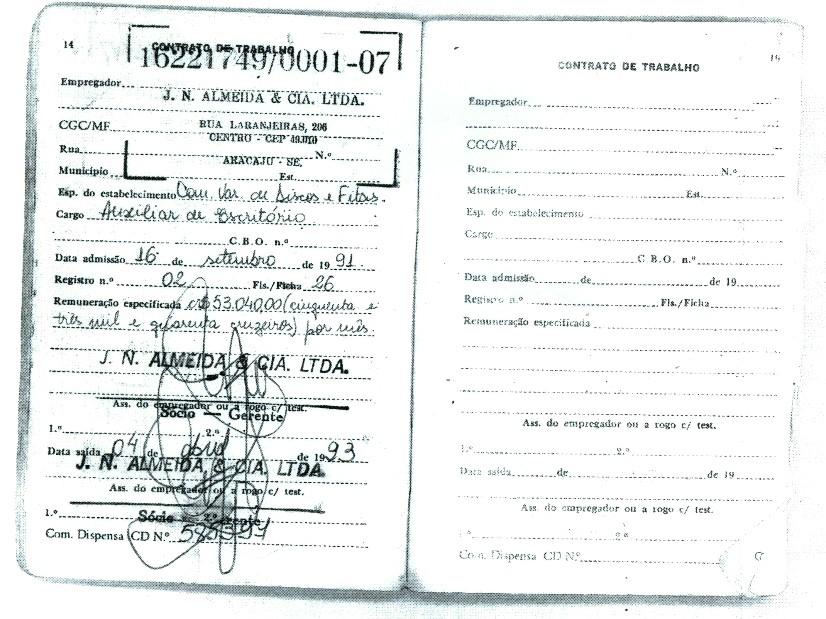 14
CONTRATO DE TRABALHO
16221749/0001-07
Empregador
J. N. ALMEIDA & CIA. LTDA.
CGC/MF RUA LARANJEIRAS, 206
CENTRO - CEP 49.010
Rua N.º
ARACAJU - SE.
Município Est.
Esp. do estabelecimento Com. Var. de Discos e Fitas.
Cargo Auxiliar de Escritório
C.B.O. n.º
Data admissão 16 de setembro de 1991.
Registro n.º 02 Fls./Ficha 26
Remuneração especificada cr$ 53.040,00 (cinquenta e
três mil e quarenta cruzeiros) por mês.
J. N. ALMEIDA & CIA. LTDA.
Ass. do empregador ou a rogo c/ test.
Sócio — Gerente
1.º 2.º
Data saída 04 de abril de 1993
J. N. ALMEIDA & CIA. LTDA
Ass. do empregador ou a rogo c/ test.
1.º Sócio 2.º Gerente
Com. Dispensa CD N.º
CONTRATO DE TRABALHO
Empregador
CGC/MF
Rua N.º
Município Est.
Esp. do estabelecimento
Cargo
C.B.O. n.º
Data admissão de de 19
Registro n.º Fls./Ficha
Remuneração especificada
Ass. do empregador ou a rogo c/ test.
1.º 2.º
Data saída de de 19
Ass. do empregador ou a rogo c/ test.
1.º 2.º
Com. Dispensa CD N.º